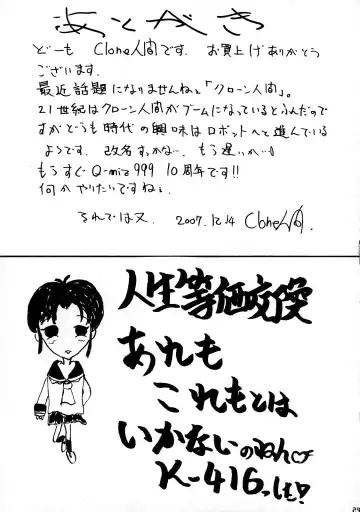 あとがき
どーも Clone人間です。お買上げありがとう
ございます。
最近話題になりませんねぇ「クローン人間」。
21世紀はクローン人間がブームになっているとふんだので
すがどうも時代の興味はロボットへと進んでいる
ようです。改名すっかな…もう遅いか…
もうすぐQ-mic 999 10周年です!!
何かやりたいですねぇ
それでは又。 2007.12.14 Clone人間.
人生等価交換
あれも
これもとは
いかないのねん♡
K-416っしも!